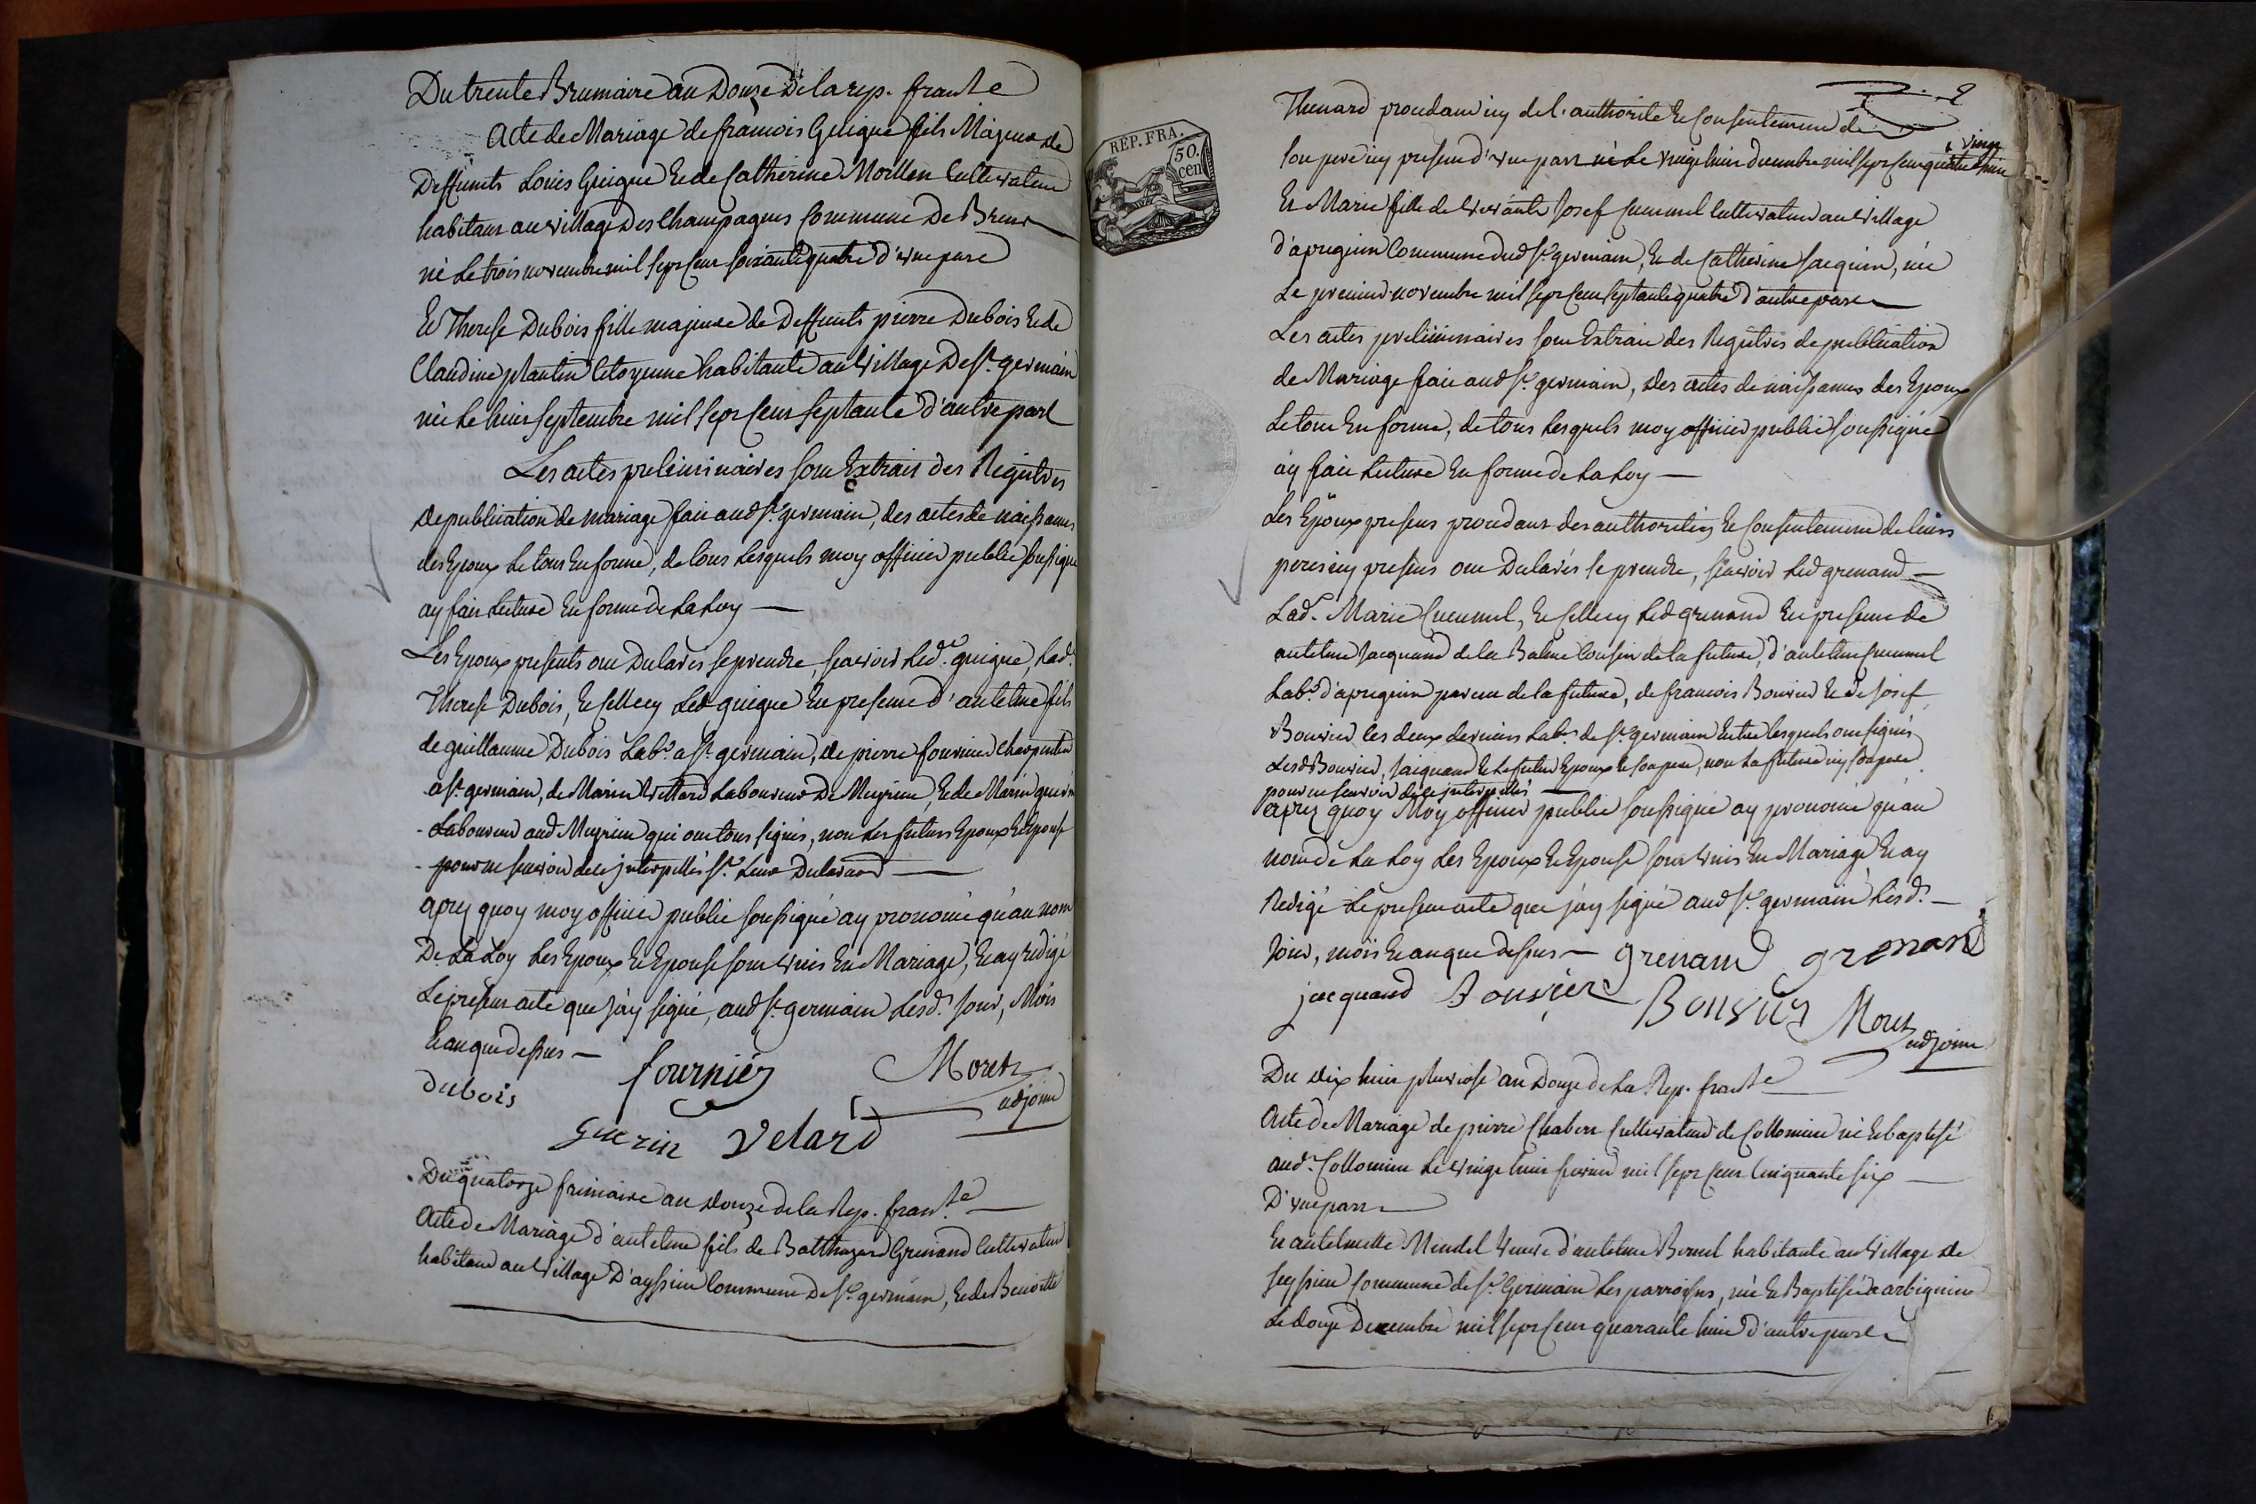 Du trente Brumaire an Douze De la rep. franse
Acte de Mariage de francois Guigue fils Majeur de
Deffunts Louis Guigue Et de Catherine Mollen Cultivateur
habitant au village Des Champagnes Commune De Brens
né Le trois novembre mil sept Cent soixante quatre d'une part
Et Therese Dubois fille majeure de Deffunts pierre Dubois Et de
Claudine plantin Citoyenne habitante au village De St. germain
née Le huit septembre mil sept Cent septante d'autre part
Les actes preliminaires sont Extrait des Registres
de publication de mariage fait aud St. germain, des actes de naissances
des Epoux Le tout En forme, de tous Lesquels moy officier public soussigné
ay fait Lecture En forme de La Loy
Les Epoux presents ont Declarés se prendre, scavoir Led. guigue, Lad.
Therese Dubois, Et Cellecy Led guigue En presence d'antelme fils
de guillaume Dubois Labr. a St. germain, de pierre fournier charpentier
a St. germain, de Marin Vettard Laboureur De Meyrieu, Et de Marin guerin
Laboureur aud Meyrieu qui ont tous signés, non Les futurs Epoux Et Epouse
pour ne scavoir de ce jnterpellés St. Leur Declarand
aprez quoy moy officier public soussigné ay prononcé qu'au nom
De La Loy Les Epoux Et Epouse sont unis En Mariage, Et ay redigé
Le present acte que j'ay signé, aud St. germain Lesd. jour, Mois
Et an que dessus
dubois fournier Moret adjoint
Guerin Velard
Du quatorze frimaire an douze de la Rep. franse
Acte de Mariage d'antelme fils de Balthazard Grenand Cultivateur
habitant au village D'ayssieu Commune De St. germain, Et de Benoitte
REP. FRA.
50. cen
2
Thenard procedant icy de l'authorité Et Consentement de
son pere icy present d'une part né Le vingt huit decembre mil sept cent quatre vingt
Et Marie fille de vivants Josef Cuennel Cultivateur au village
d'apregnin Commune dud St. germain, Et de Catherine Jacquin, née
Le premier novembre mil sept Cent septante quatre d'autre part
Les actes preliminaires sont Extrait des Registres de publication
de Mariage fait aud St. germain, des actes de naissances des Epoux
Le tout En forme, de tous Lesquels moy officier public soussigné
ay fait Lecture En forme de La Loy
Les Epoux presens procedant des authorités Et Consentement de leurs
peres icy presens ont Declarés se prendre, scavoir Led grenand
Lad. Marie Cuennel, Et Cellecy Led grenand En presence de
antelme Jacquand de la Balme Cousin de la future, d'antelme Cuennel
Labr. d'apregnin parent de la future, de francois Bouvier Et de Josef
Bouvier les deux derniers Labr. de St. germain Entre lesquels ont signés
Lesd Bouvier, Jacquand Et Le futur Epoux Et son pere, non La future ny son pere
pour ne scavoir de ce jnterpellés
aprez quoy Moy officier public soussigné ay prononcé qu'au
nom de La Loy Les Epoux Et Epouse sont unis En Mariage Et ay
Redigé Le present acte que j'ay signé aud St. germain Lesd.
Jour, mois Et an que dessus grenand grenand
jacquand Bouvier Bouvier Moret adjoint
Du dix huit pluviose an Douze de La Rep. franse
Acte de Mariage de pierre Chabert Cultivateur de Collomieu né Et baptisé
aud. Collomieu Le vingt huit fevrier mil sept Cent Cinquante six
D'une part
Et antelmette Mendel veuve d'antelme Brunel habitante au village de
seyssieu Commune de St. Germain Les parroisses, née Et Baptisée a arbignieu
Le douze Decembre mil sept Cent quarante huit d'autre part